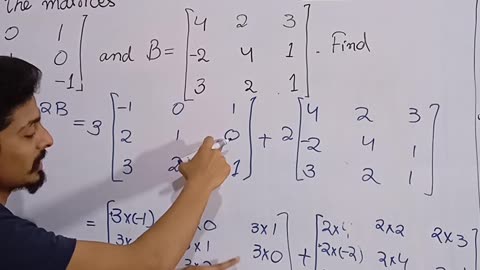 the matrices
0 1
0 and B = [4 2 3
-2 4 1
-1] 3 2 1]. Find
2B = 3 [-1 0 1
2 1 0
3 2 1] + 2 [4 2 3
-2 4 1
3 2 1]
= [3×(-1) ×0 3×1
×1 3×0] + [2×4 2×2 2×3
2×(-2) 2×4